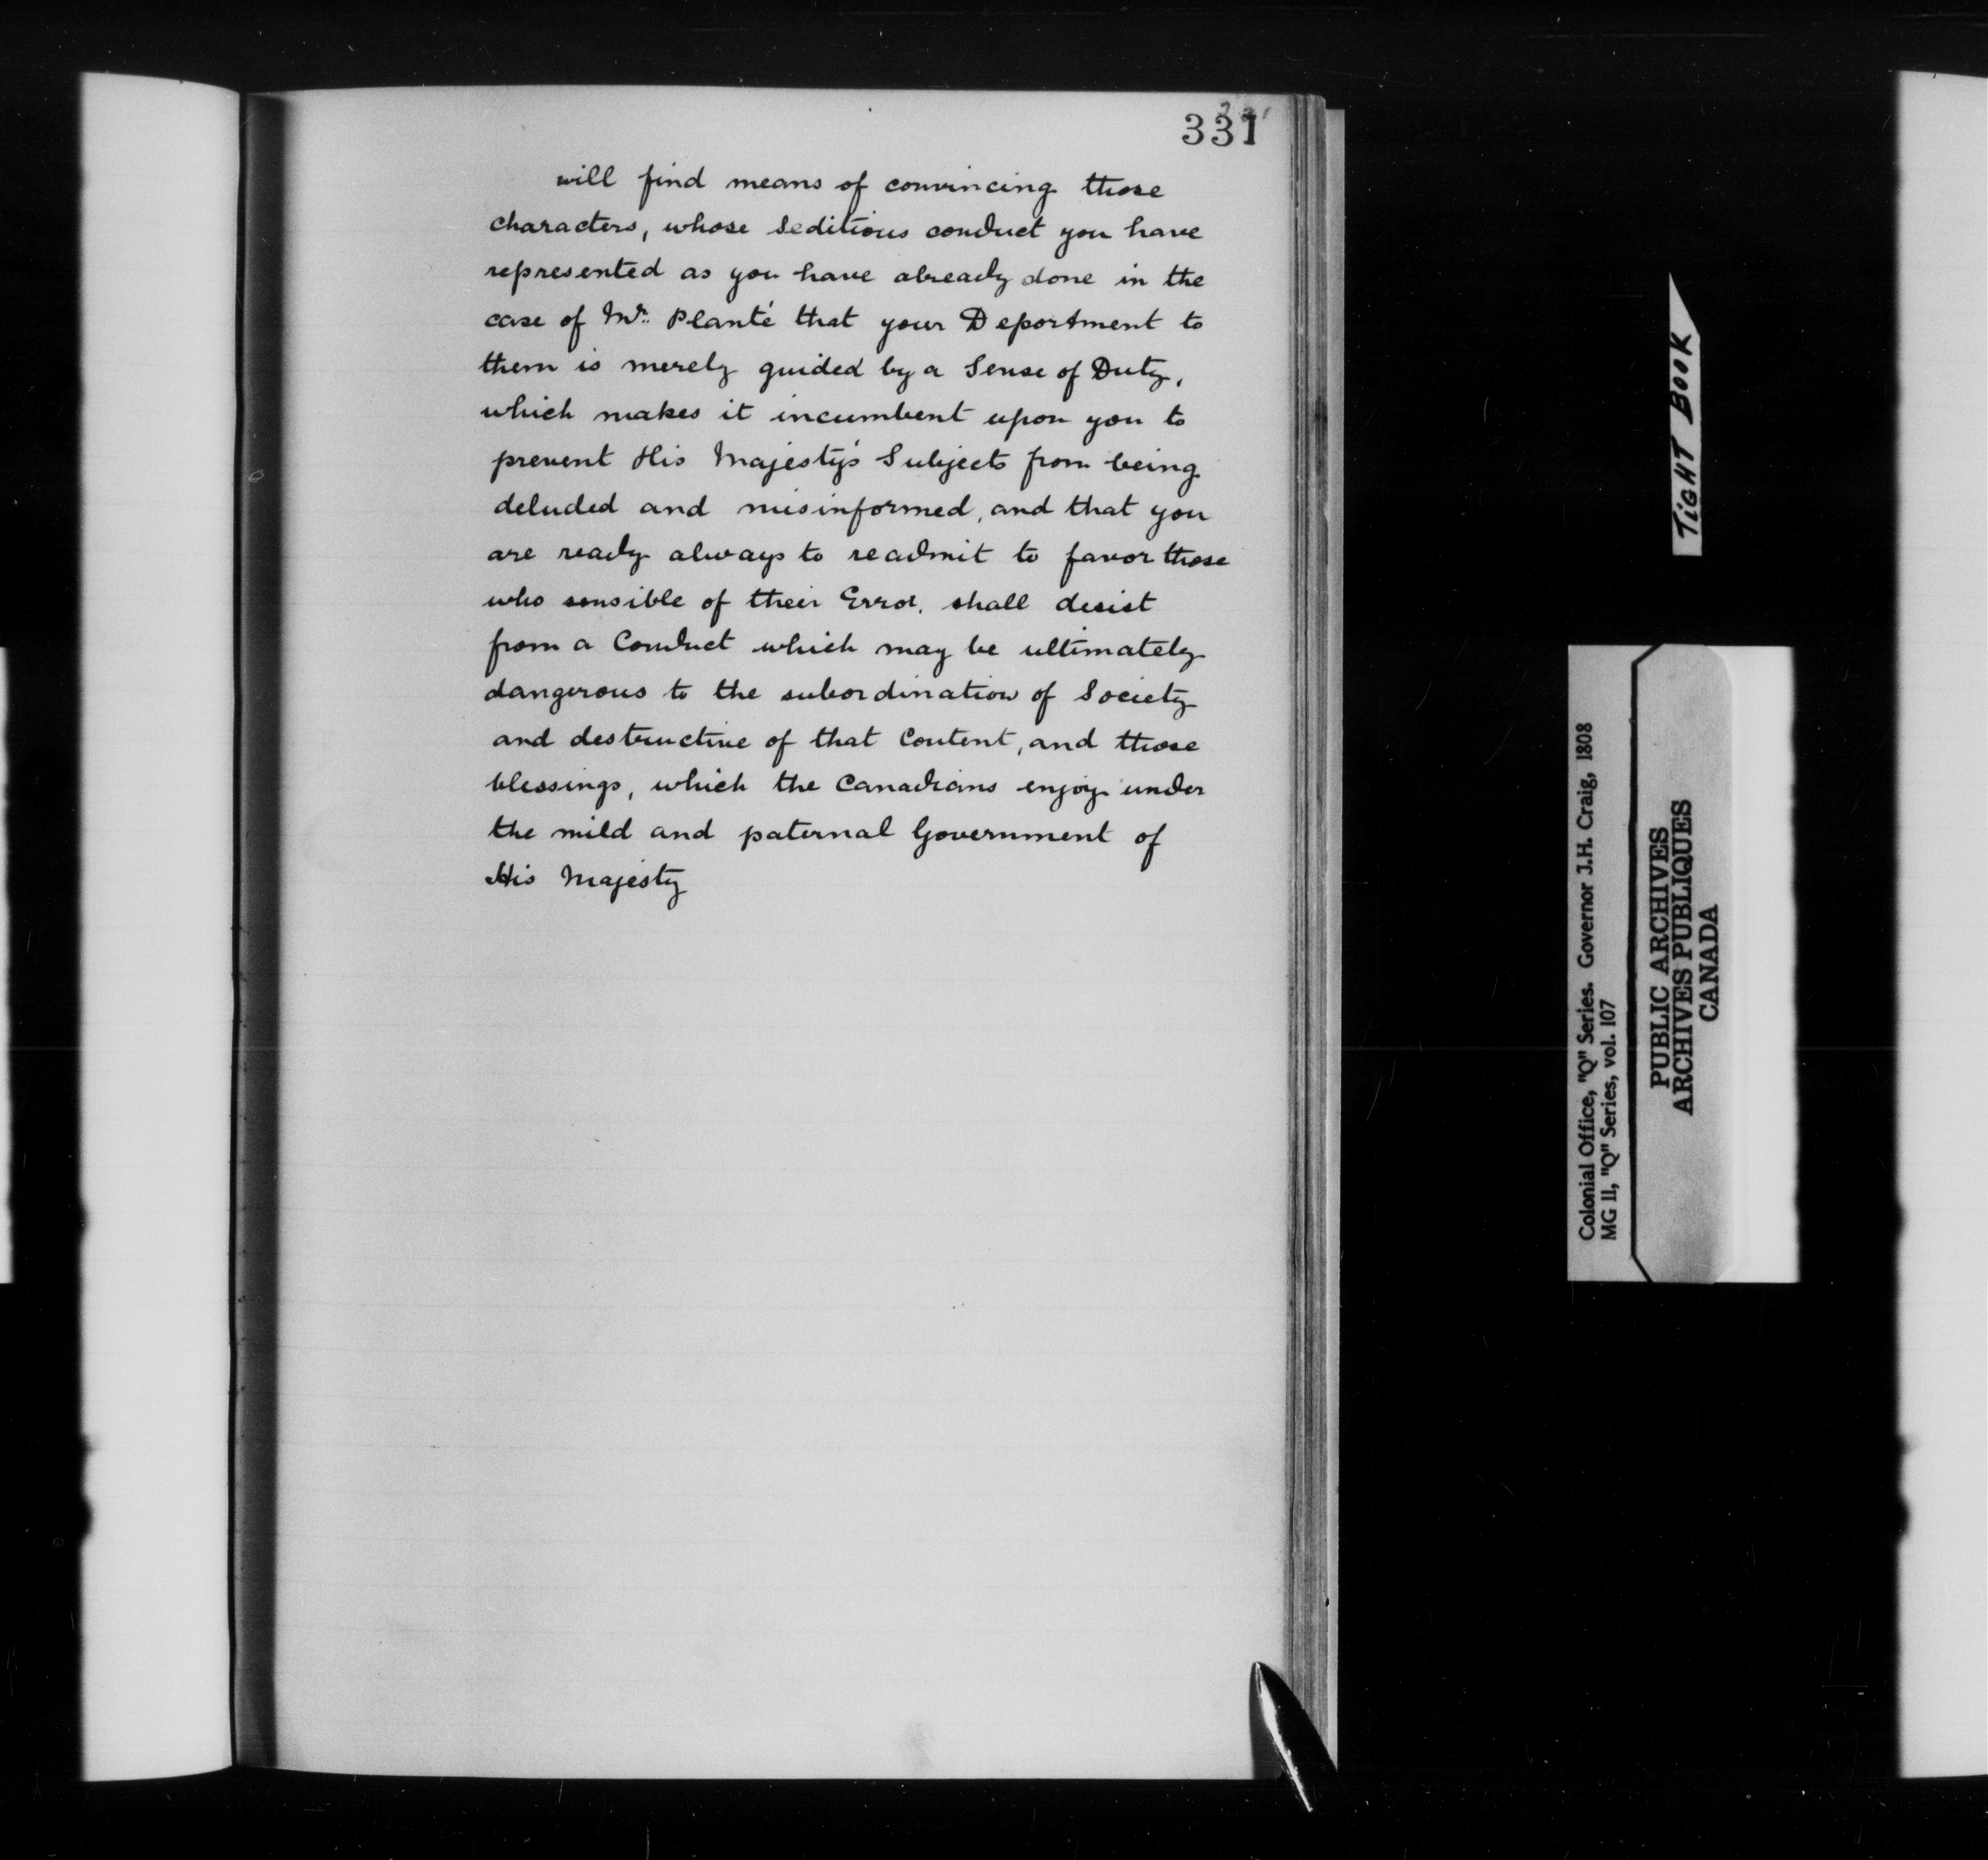 331
will find means of convincing those
characters, whose Seditious conduct you have
represented as you have already done in the
case of Mr. Planté that your Deportment to
them is merely guided by a Sense of Duty,
which makes it incumbent upon you to
prevent His Majesty's Subjects from being
deluded and misinformed, and that you
are ready always to readmit to favor those
who sensible of their Error, shall desist
from a Conduct which may be ultimately
dangerous to the subordination of Society
and destructive of that Content, and those
blessings, which the Canadians enjoy under
the mild and paternal Government of
His Majesty
TIGHT BOOK
Colonial Office, "Q" Series. Governor J.H. Craig, 1808
MG 11, "Q" Series, vol. 107
PUBLIC ARCHIVES
ARCHIVES PUBLIQUES
CANADA